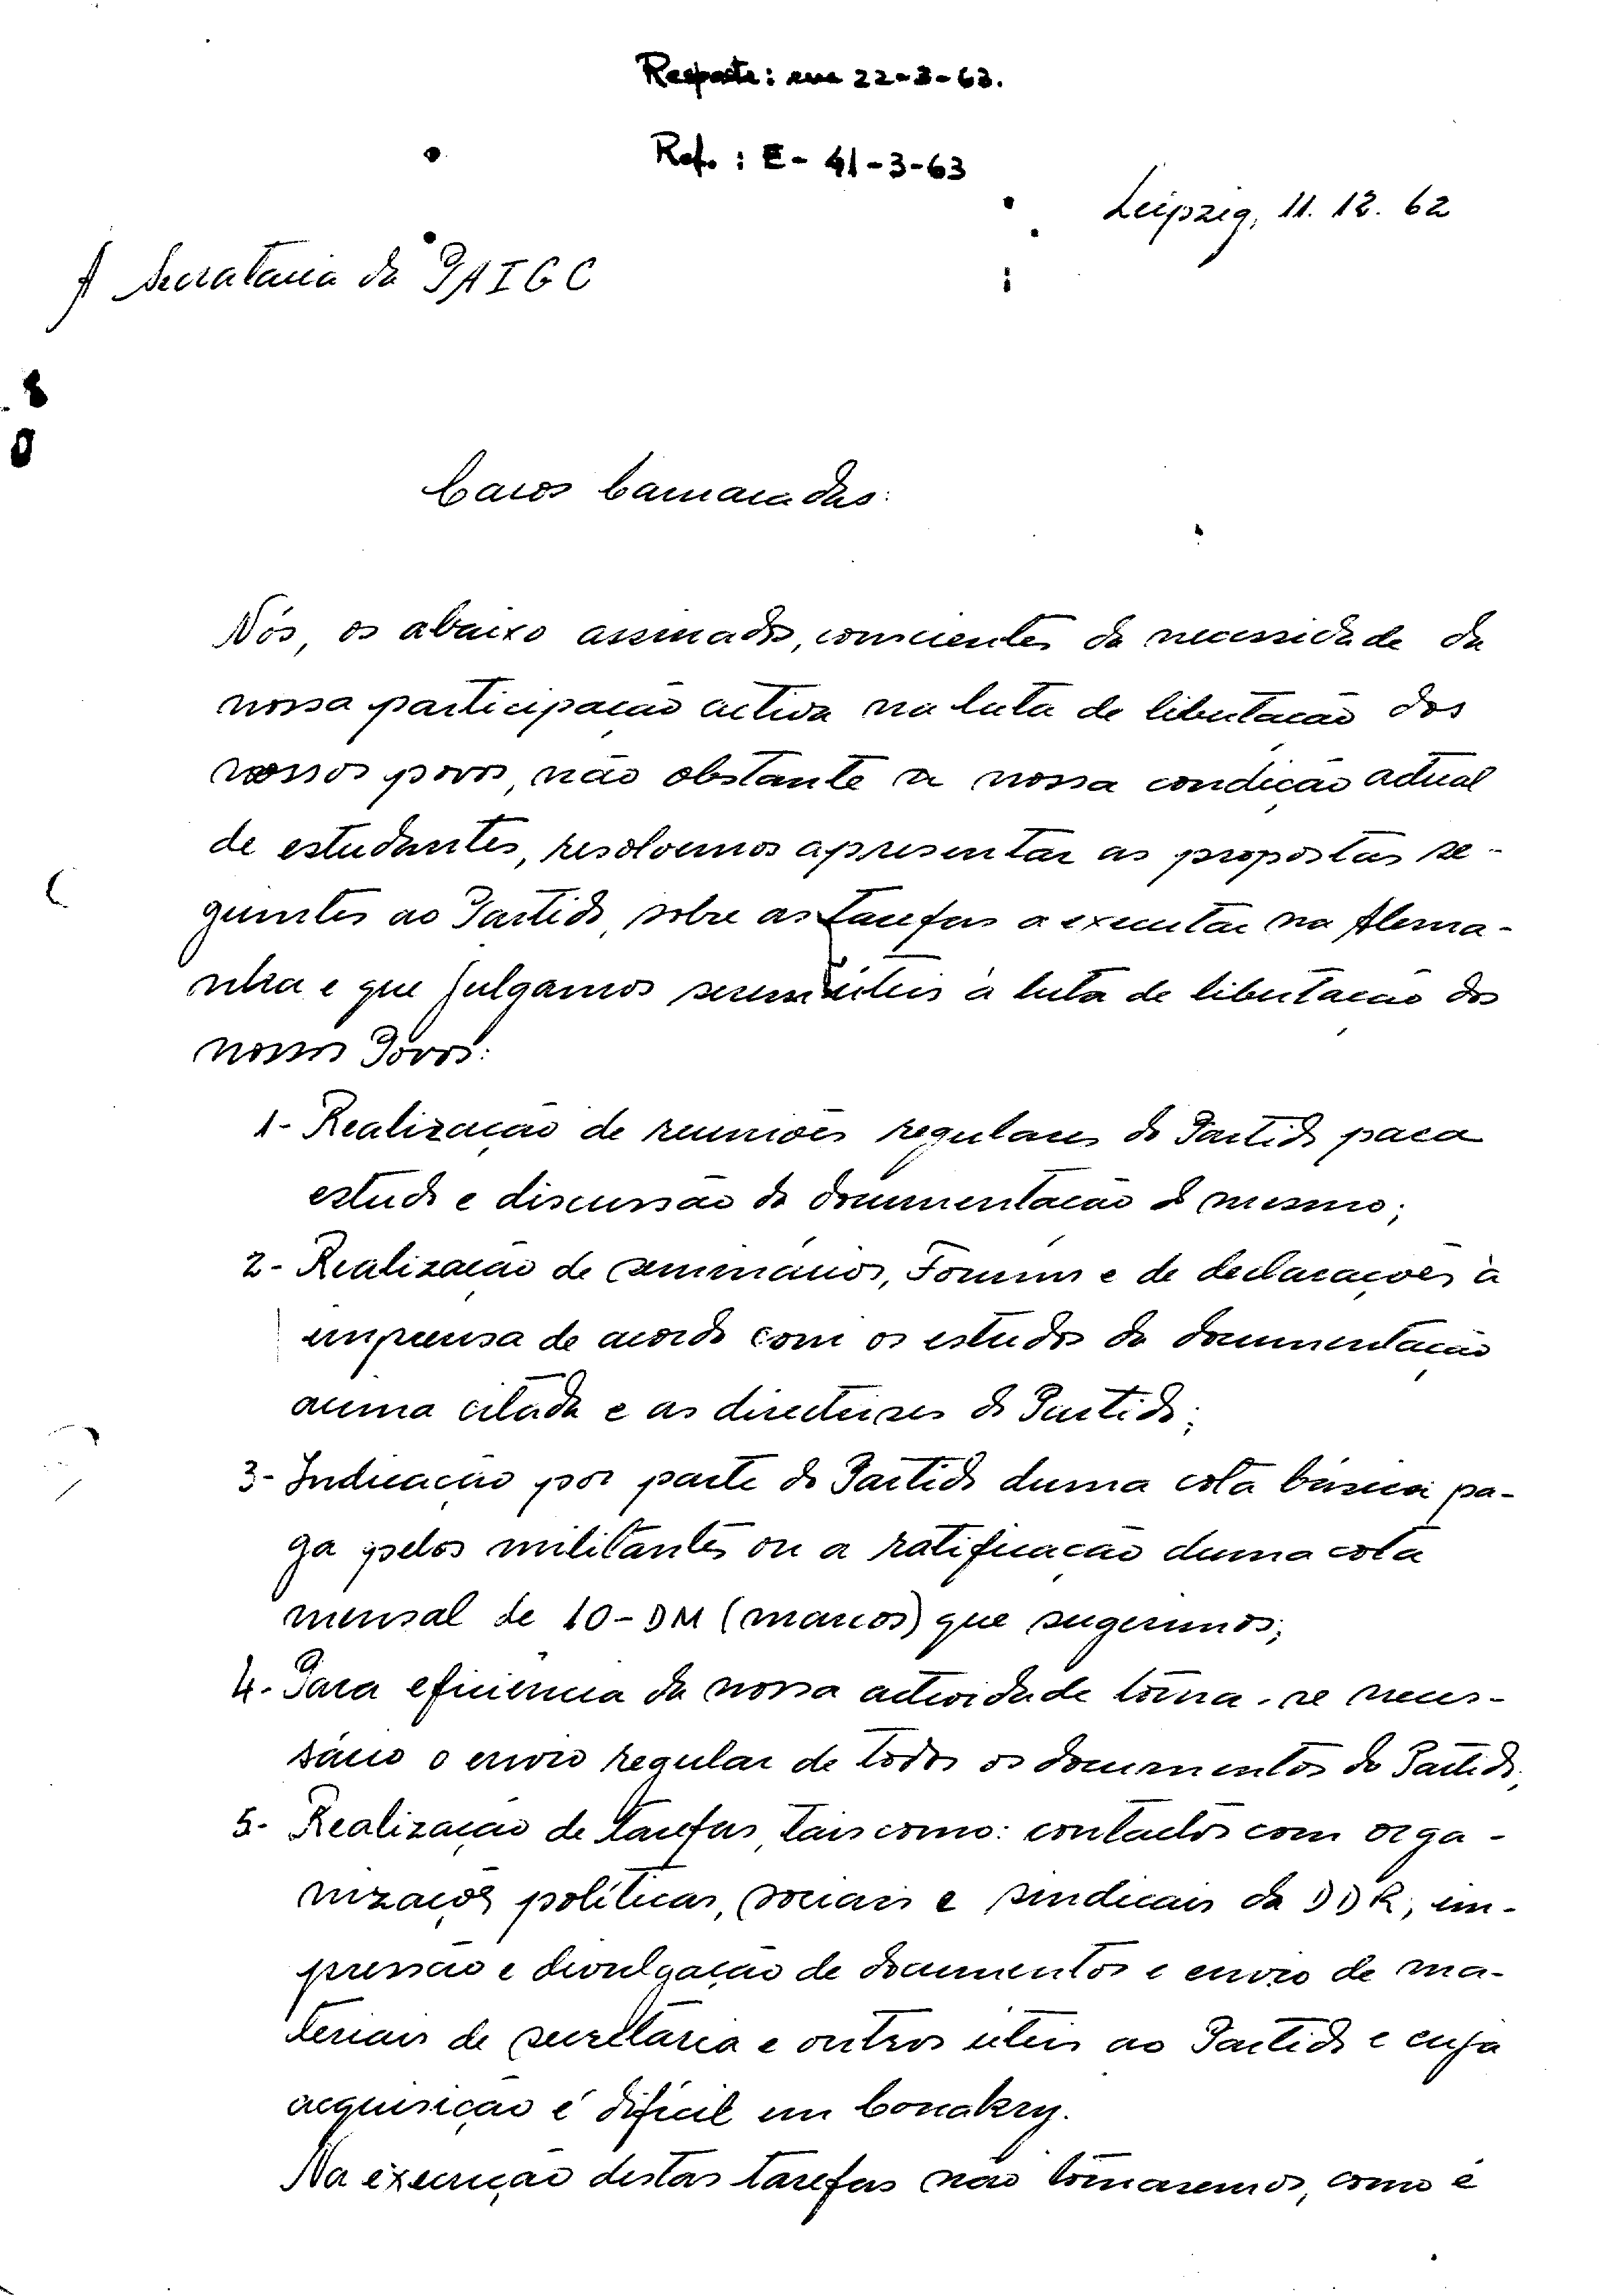 Resposta: em 22-3-63.
Ref. : E- 41-3-63
Leipzig, 11. 12. 62
À Secretaria do PAIGC
Caros Camaradas:
Nós, os abaixo assinados, conscientes da necessidade da
nossa participação activa na luta de libertação dos
nossos povos, não obstante a nossa condição actual
de estudantes, resolvemos apresentar as propostas se-
guintes ao Partido, sobre as tarefas a executar na Alema-
nha e que julgamos serem úteis à luta de libertação dos
nossos Povos:
1- Realização de reuniões regulares do Partido para
estudo e discussão da documentação do mesmo;
2- Realização de seminários, Foruns e de declarações à
imprensa de acordo com os estudos da documentação
acima citada e as directrizes do Partido;
3- Indicação por parte do Partido duma cota básica pa-
ga pelos militantes ou a ratificação duma cota
mensal de 10-DM (marcos) que sugerimos;
4. Para eficiência da nossa actividade torna-se neces-
sário o envio regular de todos os documentos do Partido;
5- Realização de tarefas, tais como: contactos com orga-
nizações políticas, sociais e sindicais da DDR, im-
pressão e divulgação de documentos e envio de ma-
teriais de secretária e outros úteis ao Partido e cuja
acquisição é difícil em Conakry.
Na execução destas tarefas não tomaremos, como é